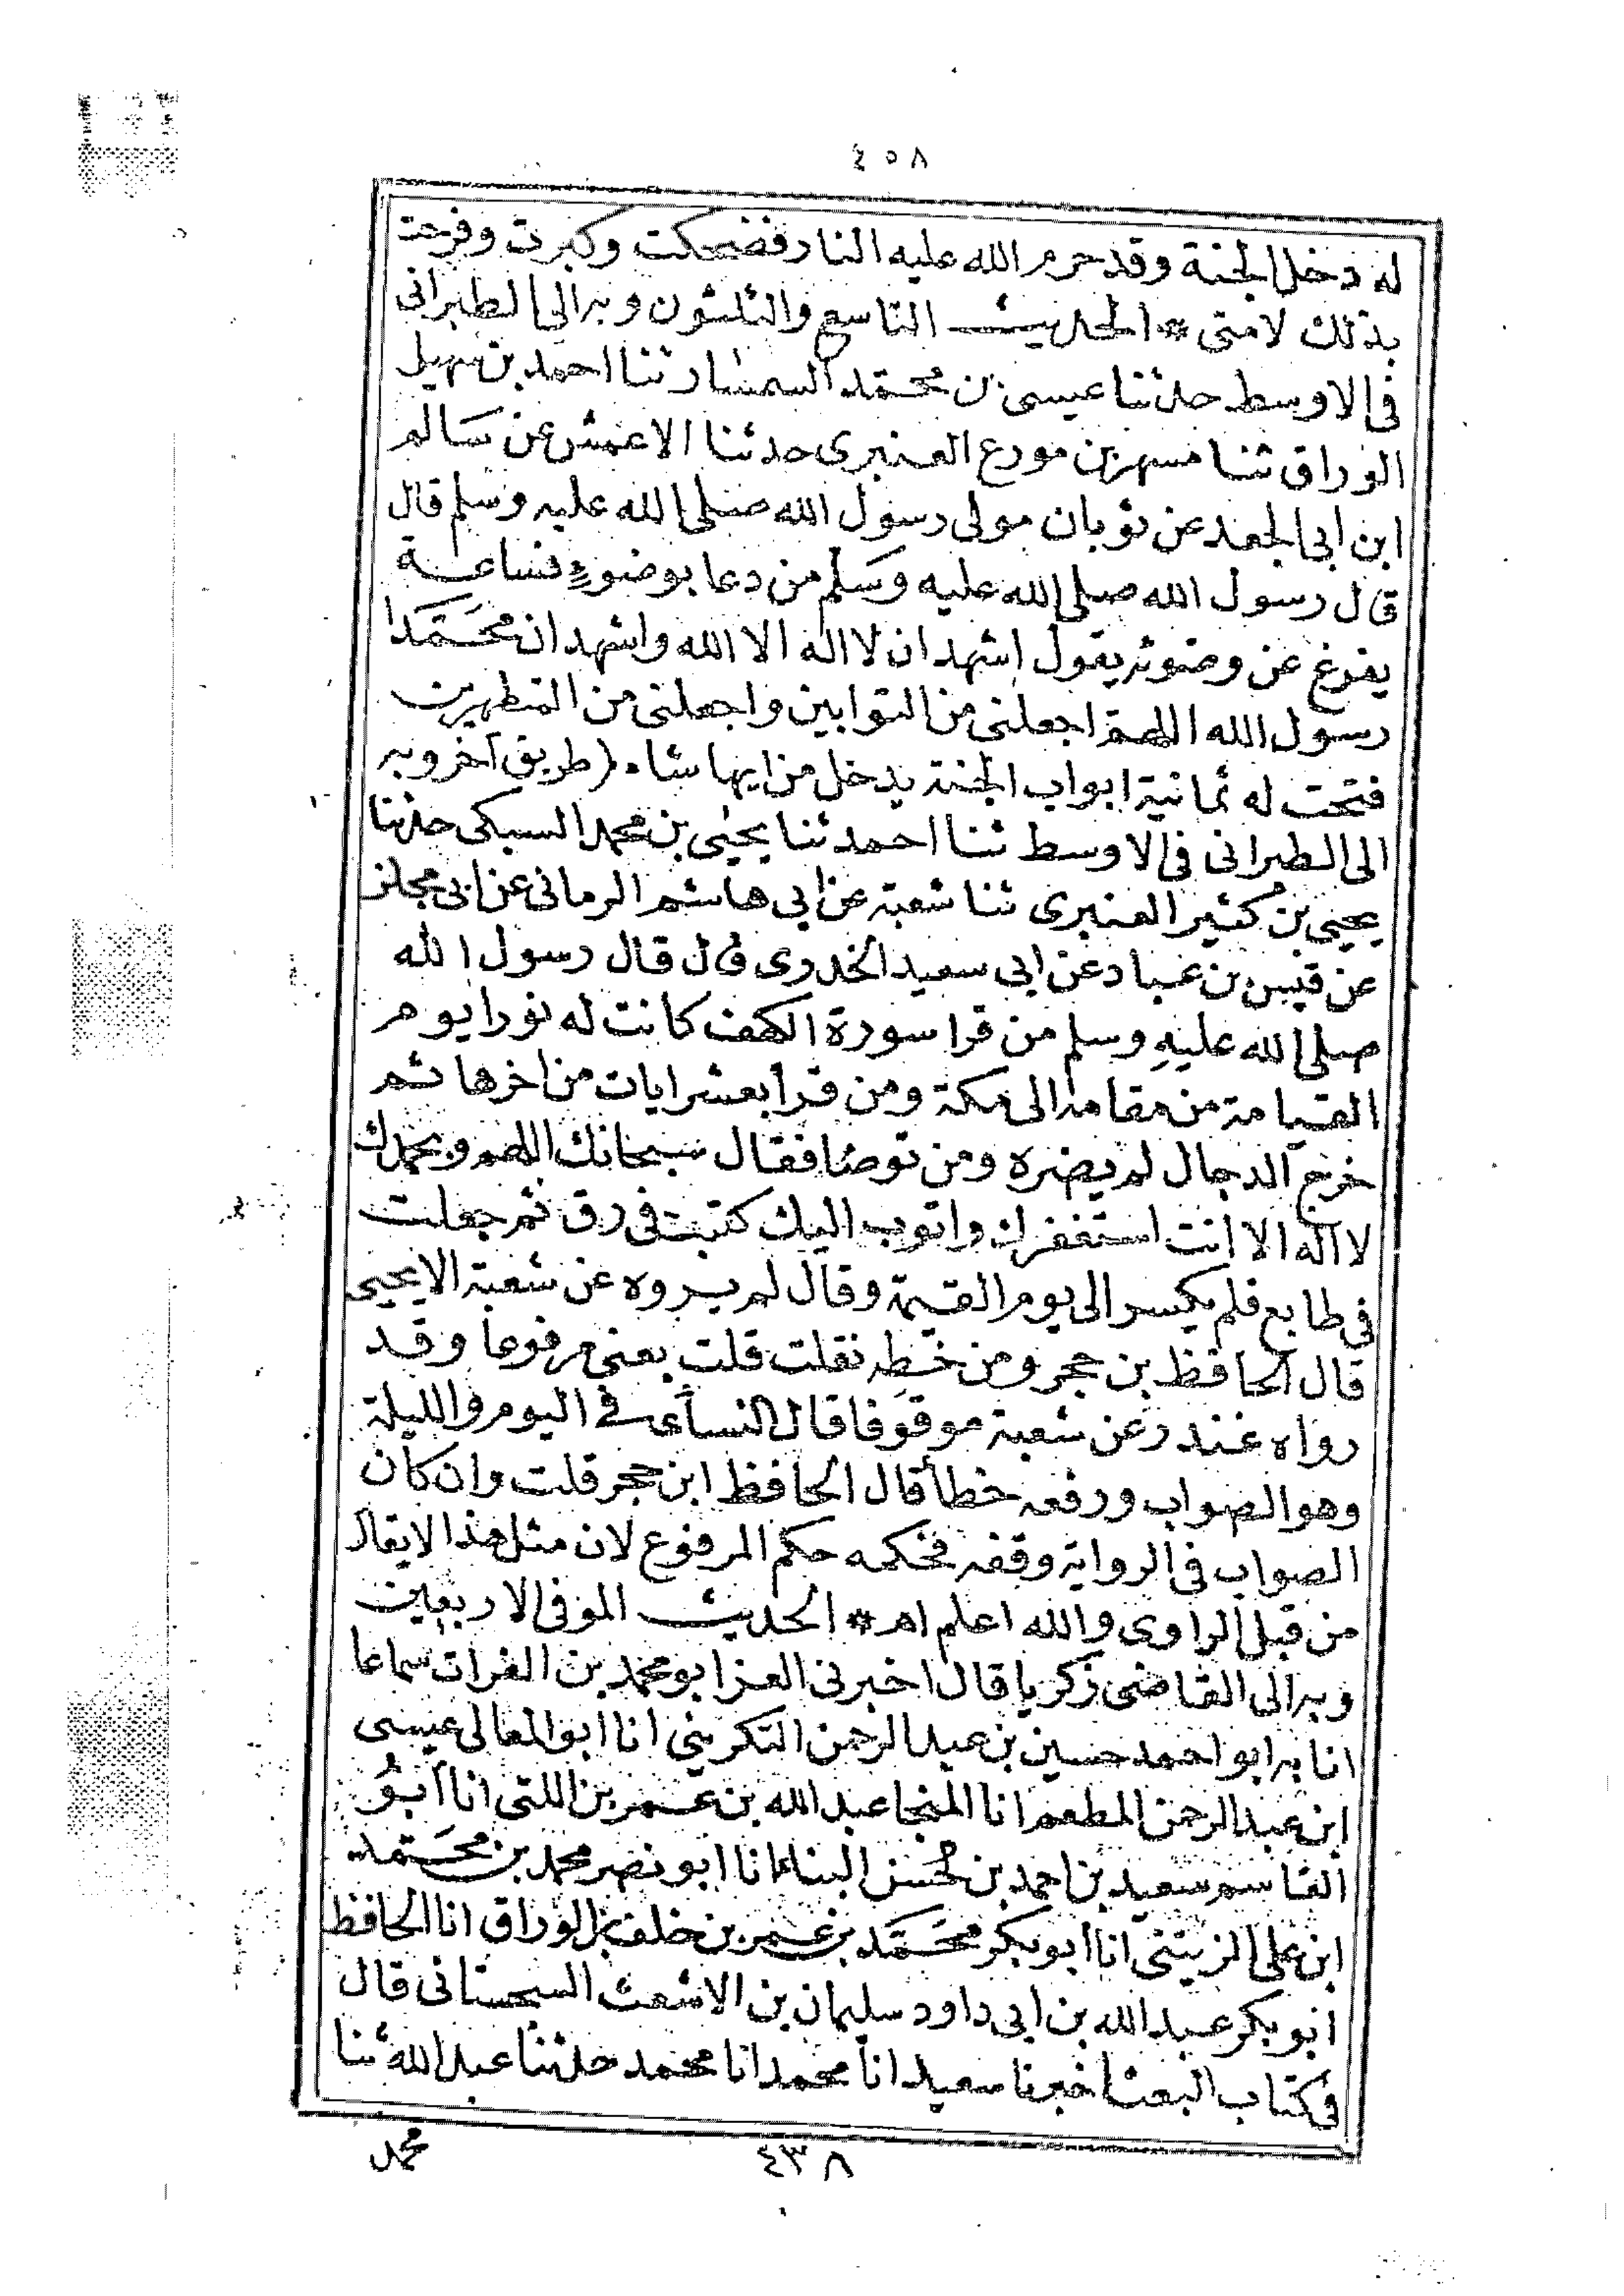 ٤٥٨
له دخل الجنة وقد حرم الله عليه النار فضحكت وكبرت وفرحت
بذلك لامتى * الحديث التاسع والثلثون وبه الى الطبرانى
فى الاوسط حدثنا عيسى بن محمد السمسار ثنا احمد بن سهيل
الوراق ثنا مسهر بن مورع العنبرى حدثنا الاعمش عن سالم
ابن ابى الجعد عن ثوبان مولى رسول الله صلى الله عليه وسلم قال
قال رسول الله صلى الله عليه وسلم من دعا بوضوء فساعة
يفرغ عن وضوئه يقول اشهد ان لا اله الا الله واشهد ان محمدا
رسول الله اللهم اجعلنى من التوابين واجعلنى من المتطهرين
فتحت له ثمانية ابواب الجنة يدخل من ايها شاء (طريق آخر وبه
الى الطبرانى فى الاوسط ثنا احمد ثنا يحيى بن محمد السبكى حدثنا
يحيى بن كثير العنبرى ثنا شعبة عن ابى هاشم الرمانى عن ابى مجلز
عن قيس بن عباد عن ابى سعيد الخدرى قال قال رسول الله
صلى الله عليه وسلم من قرا سورة الكهف كانت له نورا يوم
القيامة من مقامه الى مكة ومن قرأ بعشر ايات من اخرها ثم
خرج الدجال لم يضره ومن توضا فقال سبحانك اللهم وبحمدك
لا اله الا انت استغفرك واتوب اليك كتبت فى رق ثم جعلت
فى طابع فلم يكسر الى يوم القيمة وقال لم يروه عن شعبة الا يحيى
قال الحافظ بن حجر ومن خطه نقلت قلت يعنى مرفوعا وقد
رواه غندر عن شعبة موقوفا قال النسائى فى اليوم والليلة
وهو الصواب ورفعه خطأ قال الحافظ ابن حجر قلت وان كان
الصواب فى الرواية وقفه فحكمه حكم المرفوع لان مثل هذا لا يقال
من قبل الراوى والله اعلم اه * الحديث الموفى الاربعين
وبه الى القاضى زكريا قال اخبرنى العز ابو محمد بن الفرات سماعا
انا به ابو احمد حسين بن عبد الرحمن التكريتى انا ابو المعالى عيسى
ابن عبد الرحمن المطعم انا المنجا عبد الله بن عمر بن اللتى انا ابو
القاسم سعيد بن احمد بن حسن البناء انا ابو نصر محمد بن محمد
ابن على الزينبى انا ابو بكر محمد بن عمر بن خلف بن الوراق انا الحافظ
ابو بكر عبد الله بن ابى داود سليمان بن الاشعث السجستانى قال
فى كتاب البعث اخبرنا سعيد انا محمد انا محمد حدثنا عبد الله ثنا
محمد
٤٣٨